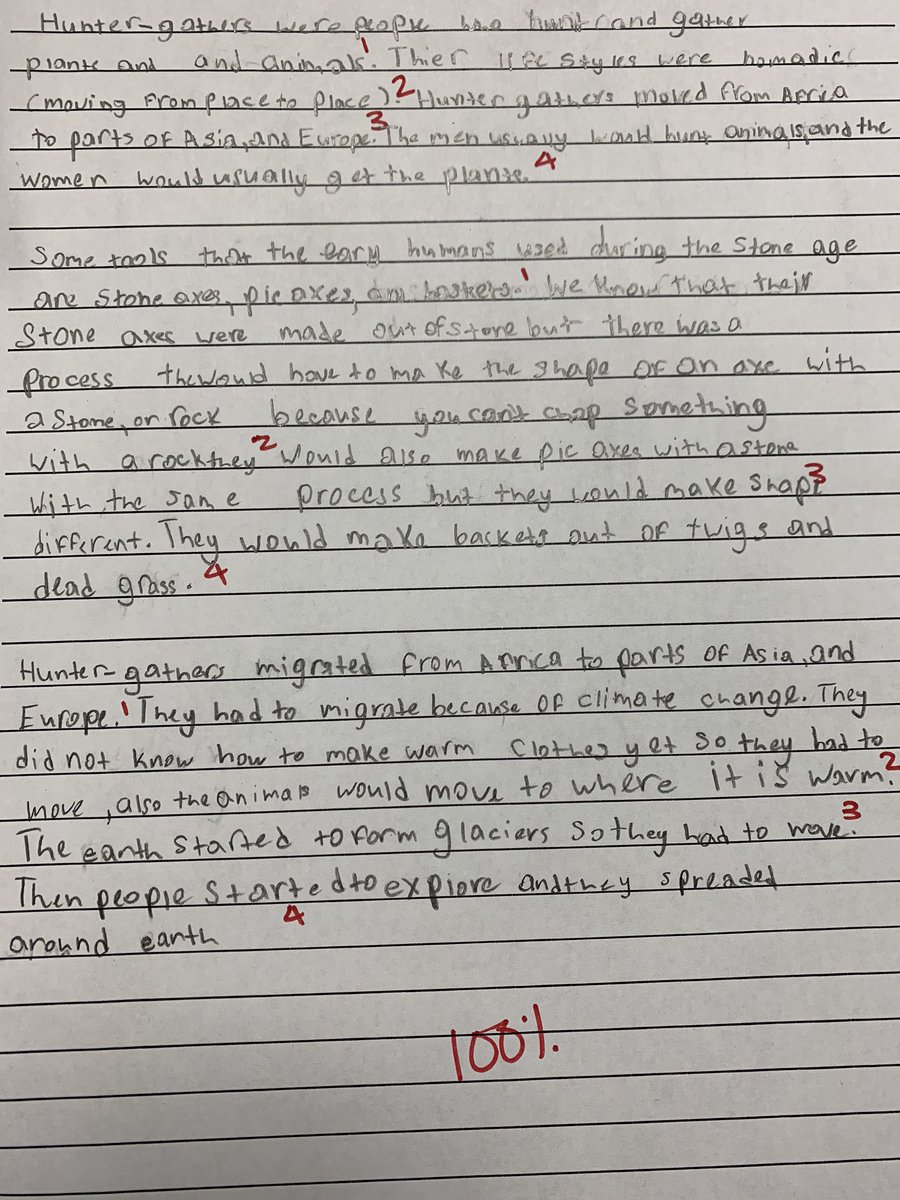 Hunter-gathers were people hao hunt and gather
plants and and animals.1 Thier life styles were nomadic
(moving from place to place).2 Hunter gathers moved from Africa
to parts of Asia, and Europe.3 The men usually would hunt animals, and the
women would usually get the plants.4
Some tools that the eary humans used during the Stone age
are Stone axes, pic axes, and baskets.1 We know that their
Stone axes were made out of stone but there was a
process the would have to make the shape of an axe with
a stone, or rock because you can't chop something
with a rock they2 would also make pic axes with a stone
with the same process but they would make shape3
different. They would make backets out of twigs and
dead grass.4
Hunter-gathers migrated from Africa to parts of Asia, and
Europe.1 They had to migrate because of climate change. They
did not know how to make warm clothes yet so they had to
move, also the animals would move to where it is warm.2
The earth started to form glaciers so they had to move.3
Then people started to explore and they spreaded
4
around earth
100%